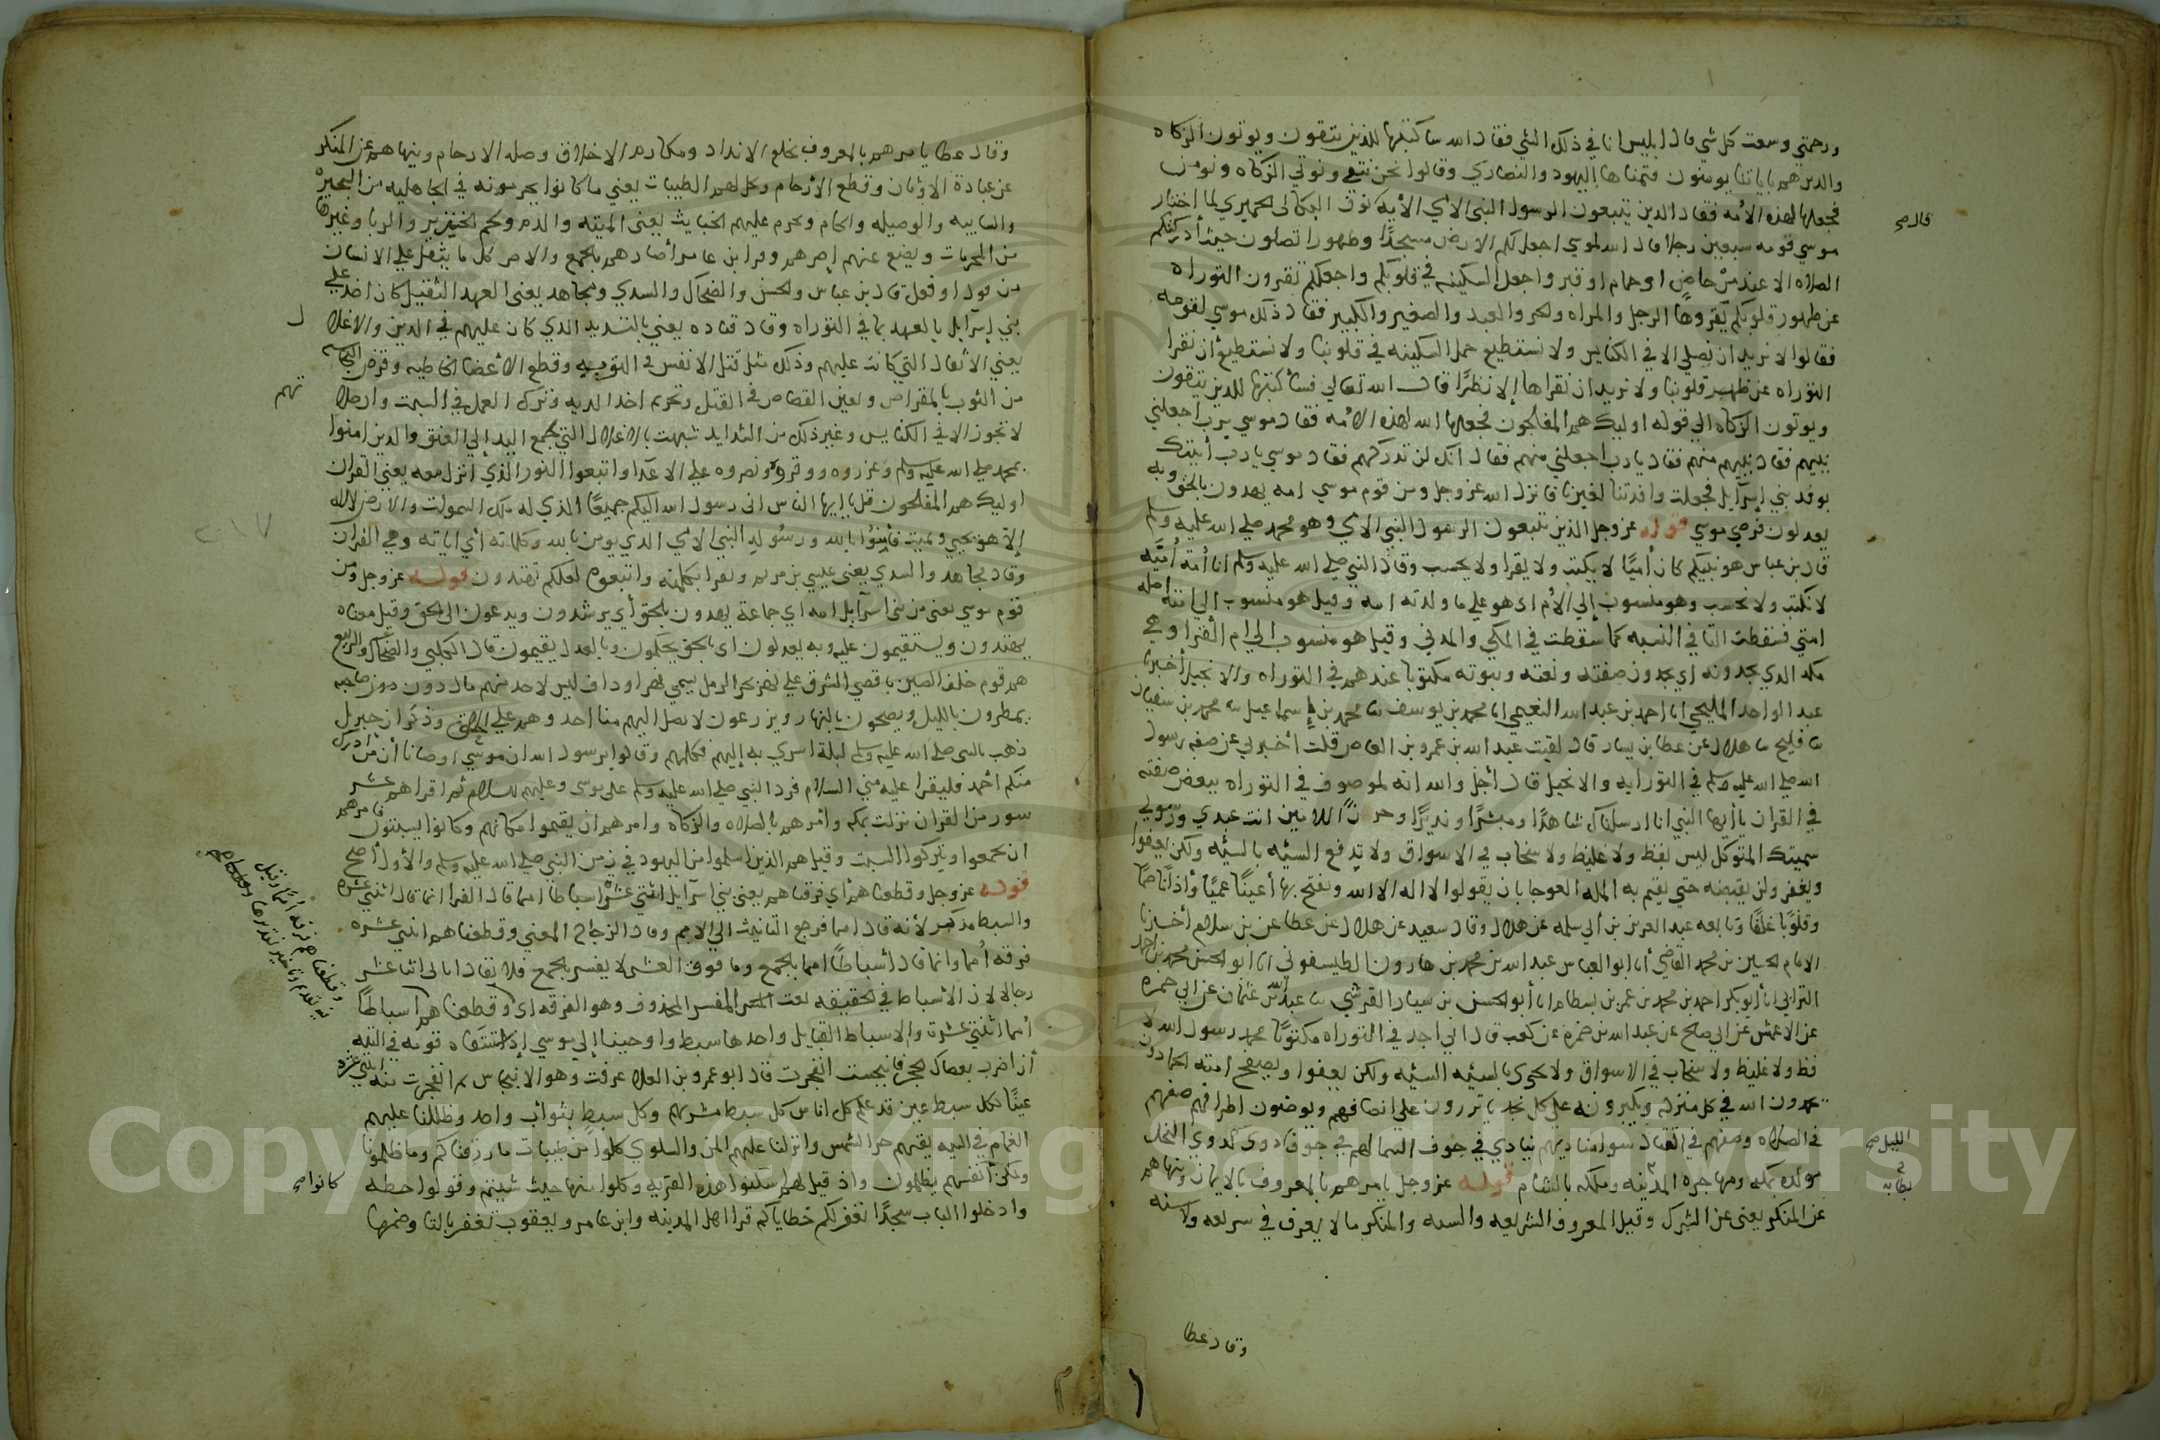 ورحمتي وسعت كل شي قال ابليس انا في ذلك الشي فقال الله ساكتبها للذين يتقون ويوتون الزكاه
والذين هم باياتنا يومنون فتمناها اليهود والنصاري وقالوا نحن نتقي ونوتي الزكاه ونومن
فجعلها لهذه الأمه فقال الذين يتبعون الرسول النبي الامي الأيه نوف البكالي الحميري لما اختار
قال صح
موسي قومه سبعين رجلا قال الله لموسي اجعل لكم الارض مسجدًا وطهورا تصلون حيث أدركتكم
الصلاه الا عند مرحاض او حمام او قبر واجعل السكينه في قلوبكم واجعلكم تقرون التوراه
عن ظهور قلوبكم يقروها الرجل والمراه والحر والعبد والصغير والكبير فقال ذلك موسي لقومه
فقالوا لا نريد ان نصلي الا في الكنايس ولا نستطيع حمل السكينه في قلوبنا ولا نستطيع أن نقرا
التوراه عن ظهر قلوبنا ولا نريد ان نقراها إلا نظرًا قال الله تعالي فسأكتبها للذين يتقون
ويوتون الزكاه الي قوله اوليك هم المفلحون فجعلها الله لهذه الأمه فقال موسي يرب اجعلني
نبيهم فقال نبيهم منهم فقال يارب اجعلني منهم فقال انك لن تدركهم فقال موسي يارب أتيتك
بوفد بني إسرآيل فجعلت وافدتنا لغيرنا فانزل الله عز وجل ومن قوم موسي امه يهدون بالحق وبه
يعدلون فرضي موسي قوله عز وجل الذين يتبعون الرسول النبي الامي وهو محمد صلي الله عليه وسلم
قال بن عباس هو نبيكم كان أميًا لا يكتب ولا يقرا ولا يحسب وقال النبي صلي الله عليه وسلم انا أمة أميّه
لا نكتب ولا نحسب وهو منسوب إلي الأم اي هو علي ما ولدته امه وقيل هو منسوب الي امته اصله
امتي فسقطت التا في النسبه كما سقطت في المكي والمدني وقيل هو منسوب الي ام القرا وهي
مكه الذي يجدونه اي يجدون صفته ونعته ونبوته مكتوبا عندهم في التوراه والانجيل أخبرنا
عبد الواحد المليحي انا احمد بن عبد الله النعيمي انا محمد بن يوسف نا محمد بن إسماعيل نا محمد بن سفيان
نا فليح نا هلال عن عطا بن يسار قال لقيت عبد الله بن عمرو بن العاص قلت أخبرني عن صفه رسول
الله صلي الله عليه وسلم في التوراه والانجيل قال أجل والله انه لموصوف في التوراه ببعض صفته
في القران ياأيها النبي انا ارسلناك شاهدًا ومبشرًا ونذيرًا وحرزًا للاميين انت عبدي ورسولي
سميتك المتوكل ليس بفظ ولا غليظ ولا سخاب في الاسواق ولا يدفع السيّه بالسيّه ولكن يعفوا
ويغفر ولن يقبضه حتي يقيم به المله العوجا بان يقولوا لا اله الا الله ويفتح بها أعينًا عميًا وأذانا صمًا
وقلوبًا غلفًا وتابعه عبد العزيز بن أبي سلمه عن هلال وقال سعيد عن هلال عن عطا عن بن سلام أخبرنا
الامام الحسين بن محمد القاضي أنا ابو العباس عبد الله بن محمد بن هارون الطيسفوني انا ابو الحسن محمد بن احمد
الترابي انا أبو بكر احمد بن محمد بن عمر بن بسطام انا أبو الحسن بن سيار القرشي نا عبد الله بن عثمان عن ابي حمزه
عن الاعمش عن ابي صالح عن عبد الله بن ضمره عن كعب قال اني اجد في التوراه مكتوبًا محمد رسول الله لا
فظ ولا غليظ ولا سخاب في الاسواق ولا يجزي بالسيّه السيّه ولكن يعفوا ويصفح امته الحمادون
يحمدون الله في كل منزله ويكبرونه علي كل نجد ياتزرون علي انصافهم ويوضئون اطرافهم صفهم
في الصلاه وصفهم في القتال سوا مناديهم ينادي في جوف السما لهم في جوف دوي كدوي النحل
الليل صح
مولده بمكه ومهاجره المدينه وملكه بالشام قوله عز وجل يامرهم بالمعروف بالايمان وينهاهم
بطابه
عن المنكر يعني عن الشرك وقيل المعروف الشريعه والسنه والمنكر ما لا يعرف في شريعه ولا سنه
وقال عطا
وقال عطا يامرهم بالمعروف بخلع الانداد ومكارم الاخلاق وصله الارحام وينهاهم عن المنكر
عن عبادة الاوثان وقطع الأرحام ويحل لهم الطيبات يعني ما كانوا يحرمونه في الجاهليه من البحيره
والسايبه والوصيله والحام ويحرم عليهم الخبايث يعني الميته والدم ولحم الخنزير والربا وغيرها
من المحرمات ويضع عنهم إصرهم وقرا ابن عامر أصارهم بالجمع والاصر كل ما يثقل علي الانسان
من قول او فعل قال بن عباس والحسن والضحاك والسدي ومجاهد يعني العهد الثقيل كان اخذ علي
بني إسرآيل بالعهد بما في التوراه وقال قتاده يعني بالتشديد الذي كان عليهم في الدين والاغلال
يعني الأثقال التي كانت عليهم وذلك مثل قتل الانفس في التوبه وقطع الأعضا الخاطيه وقرض النجاسه
من الثوب بالمقراض وتعين القصاص في القتل وتحريم اخذ الديه وترك العمل في السبت وان صلا
تهم
لا تجوز الا في الكنايس وغير ذلك من الشدايد شبهت بالاغلال التي تجمع اليد إلي العنق والذين امنوا
بمحمد صلي الله عليه وسلم وعزروه ووقروه ونصروه علي الاعدا واتبعوا النور الذي انزل معه يعني القران
اوليك هم المفلحون قل ياايها الناس اني رسول الله اليكم جميعًا الذي له ملك السموات والارض لا اله
إلا هو يحيي ويميت فأمنوا بالله ورسوله النبي الامي الذي يومن بالله وكلماته أي اياته وهي القران
وقال مجاهد والسدي يعني عيسي بن مريم ويقرا بكلمته واتبعوه لعلكم تهتدون قوله عز وجل ومن
قوم موسي يعني من بني اسرآيل امه اي جماعة يهدون بالحق أي يرشدون ويدعون الي الحق وقيل معناه
يهتدون ويستقيمون عليه وبه يعدلون اي بالحق يحكمون وبالعدل يقيمون قال الكلبي والضحاك والربيع
هم قوم خلف الصين باقصي الشرق علي نهر يجري الرمل يسمي نهر اوداف ليس لاحد منهم مال دون صاحبه
يمطرون بالليل ويصحون بالنهار ويزرعون لا يصل اليهم منا احد وهم علي الحق وذكر ان جبريل
ذهب بالنبي صلي الله عليه وسلم ليلة اسري به إليهم فكلمهم وقالوا يرسول الله ان موسي اوصانا أن من ادرك
منكم أحمد فليقرا عليه مني السلام فرد النبي صلي الله عليه وسلم علي موسي وعليهم السلام ثم اقراهم عشر
سور من القران نزلت بمكه وأمرهم بالصلاه والزكاه وامرهم ان يقيموا مكانهم وكانوا يسبتون فامرهم
ان يجمعوا ويتركوا السبت وقيل هم الذين اسلموا من اليهود في زمن النبي صلي الله عليه وسلم والأول أصح
قوله عز وجل وقطعناهم أي فرقناهم يعني بني اسرآيل اثنتي عشره اسباطا امما قال الفرا انما قال اثنتي عشره
والسبط مذكر لأنه قال امما فرجع التانيث الي الامم وقال الزجاج المعني وقطعناهم اثنتي عشره
فرقه أمما وانما قال أسباطًا امما بالجمع وما فوق العشر لا يفسر بالجمع فلا يقال اتاني اثنا عشر
رجالا لان الأسباط في الحقيقه نعت المفسر المحذوف وهو الفرقه اي وقطعناهم اسباطًا
أمما اثنتي عشرة والاسباط القبايل واحدها سبط واوحينا إلي موسي إذ استسقاه قومه في التيه
أن اضرب بعصاك الحجر فانبجست انفجرت قال ابو عمرو بن العلا عرقت وهو الانبجاس ثم انفجرت منه اثنتي عشره
عينًا لكل سبط عين قد علم كل اناس كل سبط مشربهم وكل سبط بنوا أب واحد وظللنا عليهم
الغمام في التيه يقيهم حر الشمس وانزلنا عليهم المن والسلوي كلوا من طيبات ما رزقناكم وما ظلمونا
ولكن أنفسهم يظلمون واذ قيل لهم اسكنوا هذه القريه وكلوا منها حيث شيتم وقولوا حطه
كانوا صح
وادخلوا الباب سجدًا نغفر لكم خطاياكم قرا اهل المدينه وابن عامر ويعقوب تغفر بالتا وضمها
Copyright © King Saud University